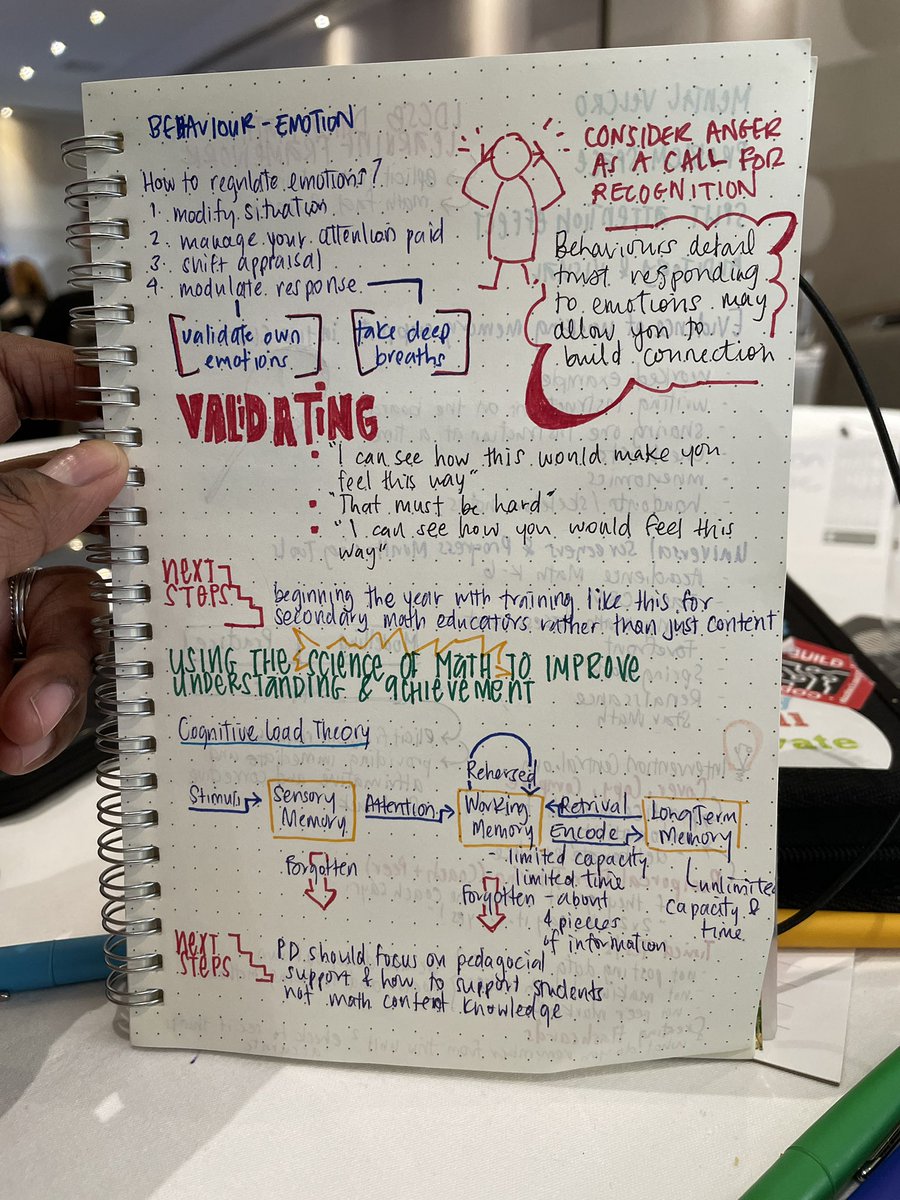 BEHAVIOUR - EMOTION
How to regulate emotions?
1. modify situation
2. manage your attention paid
3. shift appraisal
4. modulate response
validate own
emotions
take deep
breaths
CONSIDER ANGER
AS A CALL FOR
RECOGNITION
Behaviours detail
trust responding
to emotions may
allow you to
build connection
VALIDATING
"I can see how this would make you
feel this way"
"That must be hard"
"I can see how you would feel this
way"
NEXT
STEPS
beginning the year with training like this for
secondary math educators rather than just content
USING THE SCIENCE OF MATH TO IMPROVE
UNDERSTANDING & ACHIEVEMENT
Cognitive Load Theory
Rehersed
Stimuli
Sensory
Memory
Attention
Working
Memory
Retrival
Encode
Long Term
Memory
Forgotten
limited capacity
- limited time
- about
4 pieces
of information
Forgotten
unlimited
capacity &
time
NEXT
STEPS
PD should focus on pedagocial
support & how to support students
not math content knowledge
BUILD